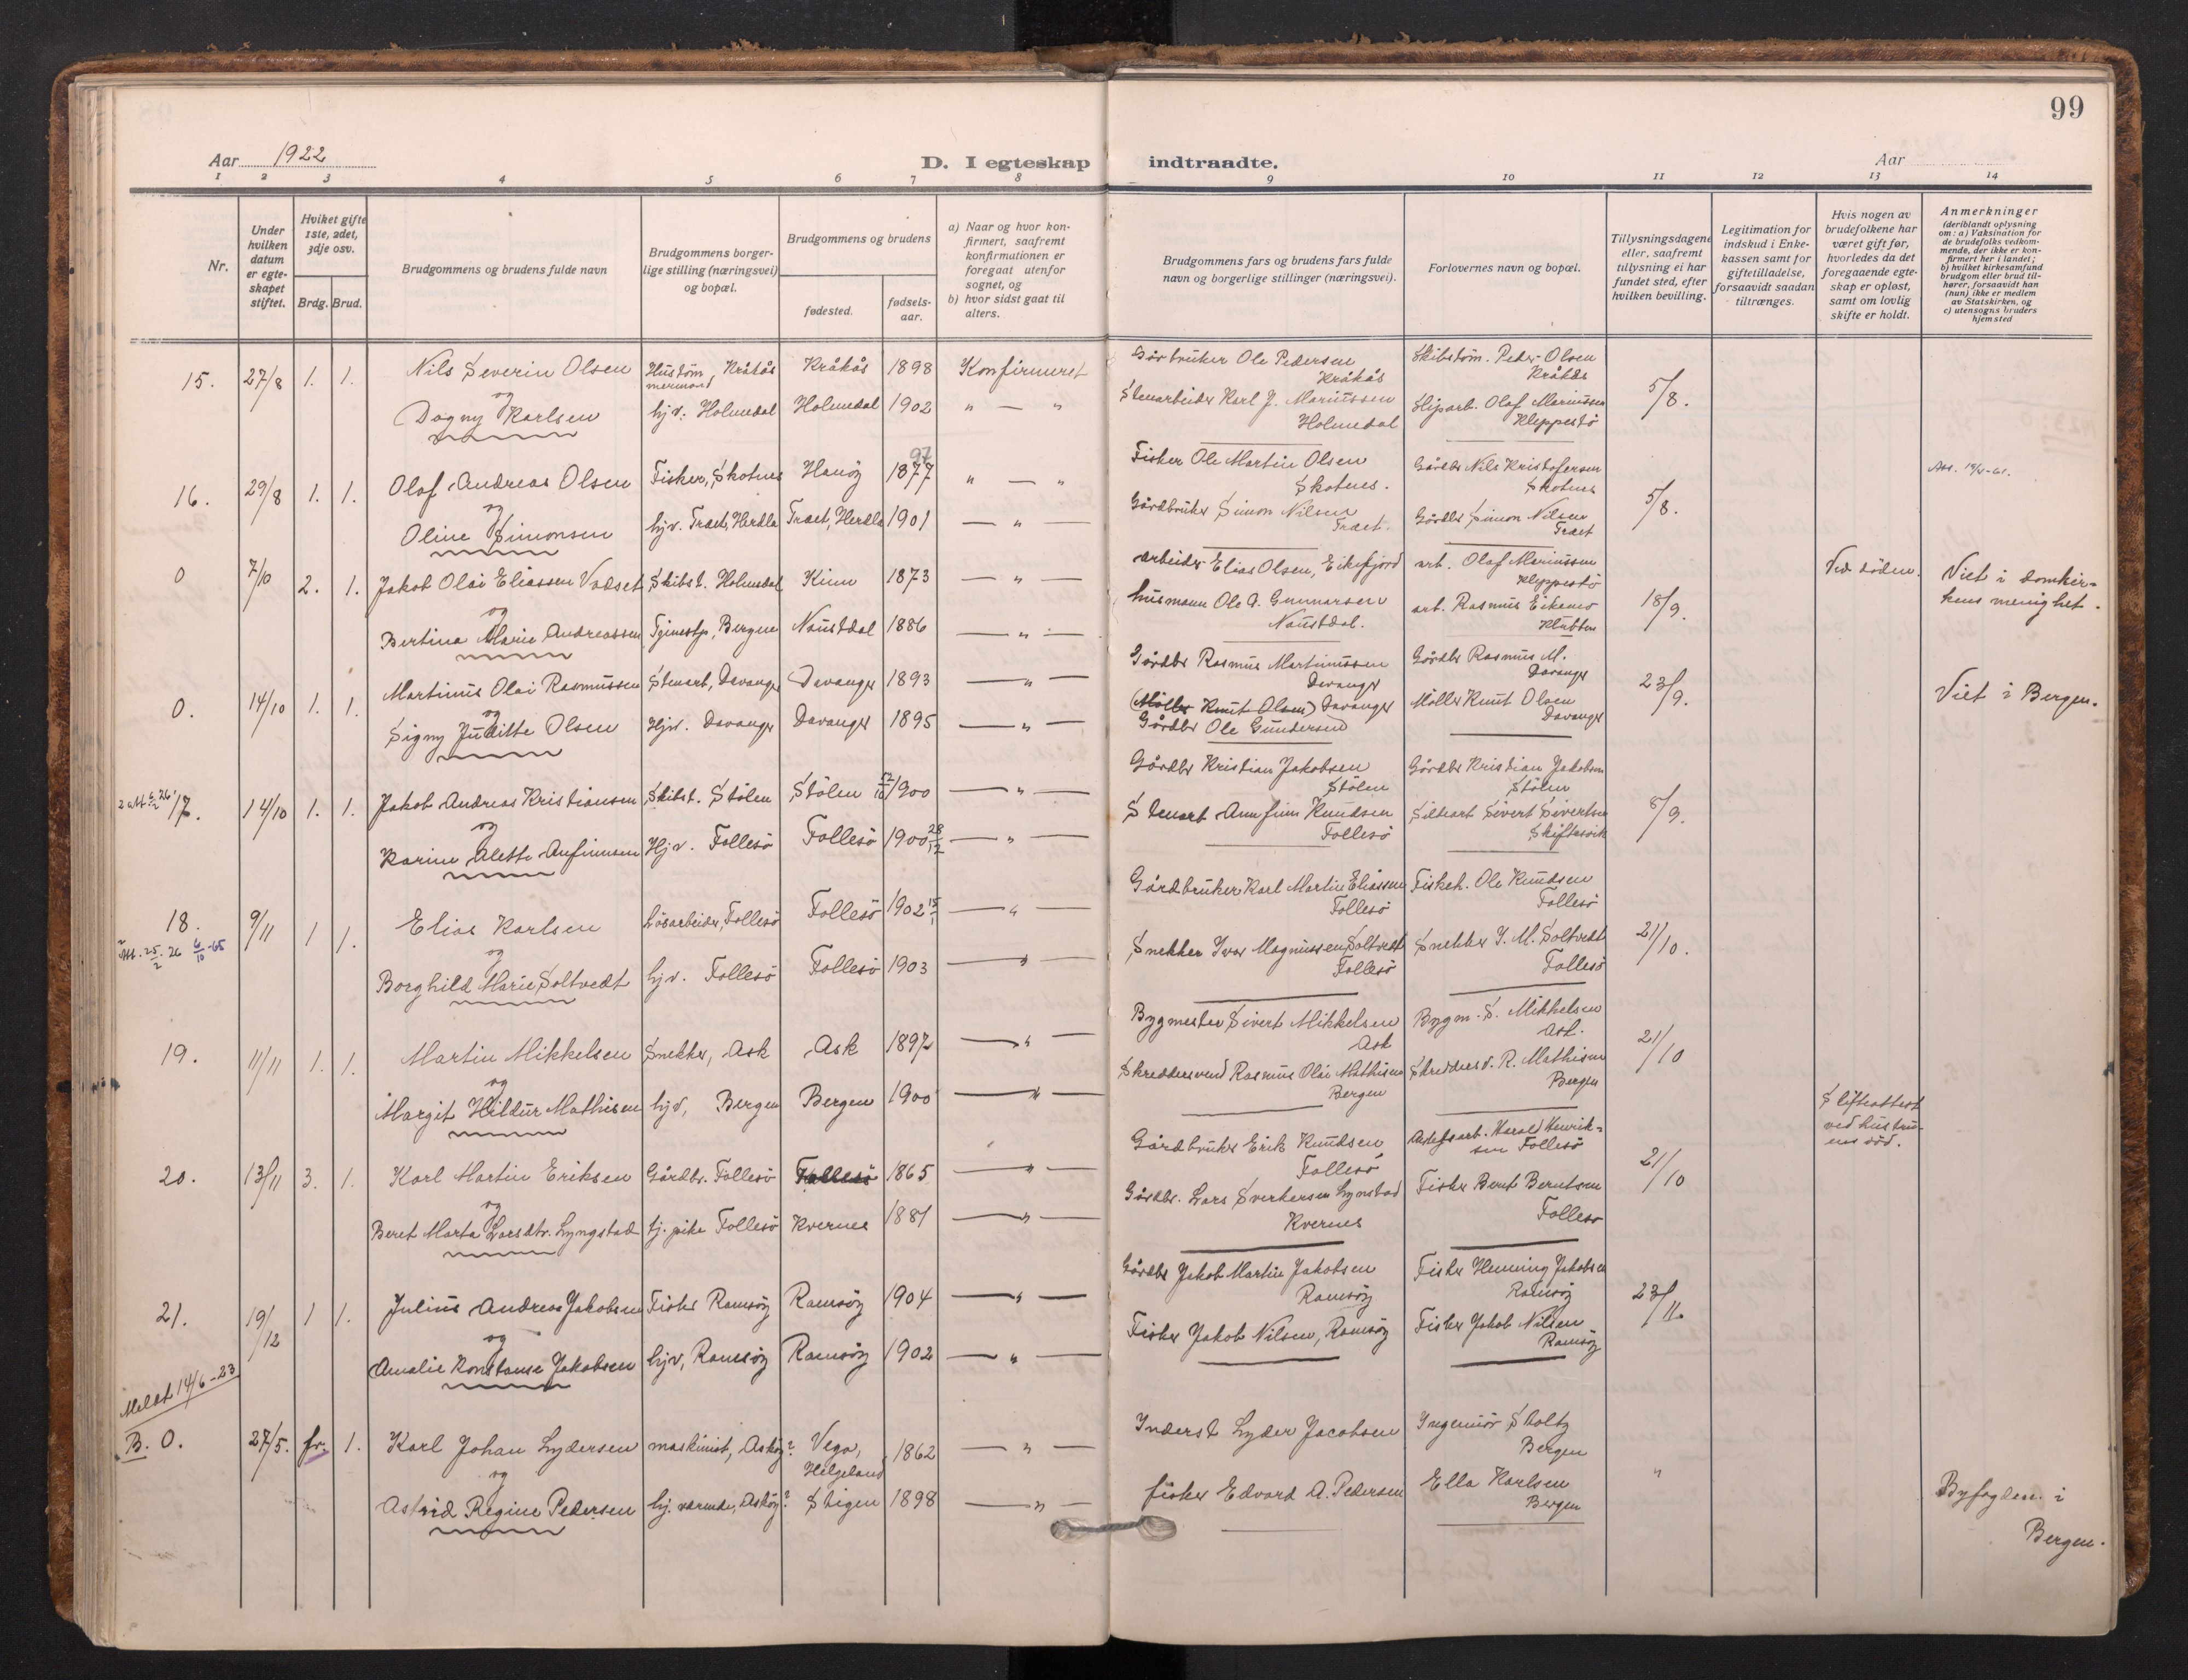 99
Aar 1922
D. I egteskap indtraadte.
Aar
1 2 3 4 5 6 7 8 9 10 11 12 13 14
Nr.
Under hvilken datum er egteskapet stiftet.
Hvilket gifte 1ste, 2det, 3dje osv.
Brdg. Brud.
Brudgommens og brudens fulde navn
Brudgommens borgerlige stilling (næringsvei) og bopæl.
Brudgommens og brudens
fødested.
fødselsaar.
a) Naar og hvor konfirmert, saafremt konfirmationen er foregaat utenfor sognet, og
b) hvor sidst gaat til alters.
Brudgommens fars og brudens fars fulde navn og borgerlige stillinger (næringsvei).
Forlovernes navn og bopæl.
Tillysningsdagene eller, saafremt tillysning ei har fundet sted, efter hvilken bevilling.
Legitimation for indskud i Enkekassen samt for giftetilladelse, forsaavidt saadan tiltrænges.
Hvis nogen av brudefolkene har været gift før, hvorledes da det foregaaende egteskap er opløst, samt om lovlig skifte er holdt.
Anmerkninger
(deriblandt oplysning om: a) Vaksination for de brudefolks vedkommende, der ikke er konfirmert her i landet; b) hvilket kirkesamfund brudgom eller brud tilhører, forsaavidt han (hun) ikke er medlem av Statskirken, og c) utensogns bruders hjemsted
15. 27/8 1. 1. Nils Severin Olsen Kråkås Kråkås 1898 Konfirmeret Ole Pedersen Kråkås Skibstøm. Peder Olsen Kråkås 5/8.
og
Dagny Karlsen hjv. Holmedal Holmedal 1902 " — " Stenarbeider Karl J. Mariussen Holmedal Sliparb. Olaf Mariussen Kleppestö
16. 29/8 1. 1. Olaf Andreas Olsen Fisker, Skotnes Hanöy 1877 97 " — " Fisker Ole Martin Olsen Skotnes. Gårdbr Nils Kristofersen Skotnes 5/8.
og
Oline Simonsen hjv. Træt, Herdla Træt, Herdla 1901 — " — Gårdbruker Simon Nilsen Træt. Gårdbr Simon Nilsen Træt
0 7/10 2. 1. Jakob Olai Eliassen Vadset Skibst. Holmedal Kinn 1873 — " — arbeider Elias Olsen, Eikefjord arb. Olaf Mariussen Kleppestö 18/9. Ved döden. Viet i domkirkens menighet.
og
Bertina Marie Andreassen Tjenestp, Bergen Naustdal 1886 — " — husmann Ole A. Gunnarsen Naustdal. arb. Rasmus Eikemo Klubben
0. 14/10 1. 1. Martinus Olai Rasmussen Stenarb, Davanger Davanger 1893 — " — Gårdbr Rasmus Martinussen Davanger Gårdbr Rasmus M. Davanger 23/9. Viet i Bergen.
og
Signy Juditte Olsen Hjv. Davanger Davanger 1895 — " — (Möller Knut Olsen) Davanger Möller Knut Olsen Davanger
Gårdbr Ole Gundersen
17. 14/10 1. 1. Jakob Andreas Kristiansen Skibst. Stölen Stölen 1900 — " — Gårdbr Kristian Jakobsen Stölen Gårdbr Kristian Jakobsen Stölen 8/9.
og
Karine Alette Anfinnsen Hjv. Follesö Follesö 1900 28/12 — " — Stenarb Annfinn Knudsen Follesö Sivert Sivertsen Skiftesvik
18. 9/11 1 1. Elias Karlsen Lösarbeider, Follesö Follesö 1902 15/1 — " — Gårdbruker Karl Martin Eliassen Follesö Fiskeh. Ole Knudsen Follesö 21/10.
Att. 25/2 26 6/10-65
og
Borghild Marie Soltvedt hjv. Follesö Follesö 1903 — " — Snekker Ivar Magnussen Soltvedt Follesö Snekker I. M. Soltvedt Follesö
19. 11/11 1. 1. Martin Mikkelsen Snekker, Ask Ask 1897 — " — Bygmester Sivert Mikkelsen Ask Bygm. S. Mikkelsen Ask. 21/10
og
Margit Hildur Mathisen hjv, Bergen Bergen 1900 — " — Skreddersvend Rasmus Olai Mathisen Bergen Skredders v. R. Mathisen Bergen
20. 13/11 3. 1. Karl Martin Eriksen Gårdbr. Follesö Follesö 1865 — " — Gårdbruker Erik Knudsen Follesö Harald Henriksen Follesö 21/10 Skifteattest ved hustruens död.
og
Beret Marta Larsdtr. Lyngstad tj. pike Follesö Kvernes 1881 — " — Gårdbr. Lars Sverkersen Lyngstad Kvernes Fisker Bernt Berntsen Follesö
21. 19/12 1 1. Julius Andreas Jakobsen Fisker Ramsöy Ramsöy 1904 — " — Gårdbr Jakob Martin Jakobsen Ramsöy Fisker Henning Jakobsen Ramsöy 23/11.
og
Amalie Konstanse Jakobsen hjv, Ramsöy Ramsöy 1902 — " — Fisker Jakob Nilsen, Ramsöy Fisker Jakob Nilsen Ramsöy
Meldt 14/6-23
B. 0. 27/5. fr. 1. Karl Johan Lydersen maskinist, Asköy? Vega, Helgeland 1862 — " — Inderst Lyder Jacobsen Ingeniör Skoltz Bergen "
og
Astrid Regine Pedersen hj. værende, Asköy? Stigen 1898 — " — fisker Edvard A. Pedersen Ella Karlsen Bergen Byfogden i Bergen.